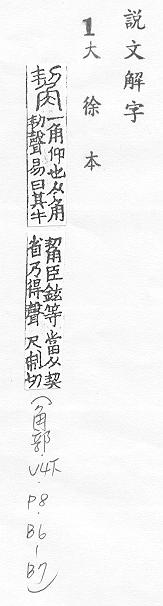 說文解字
1大徐本
觢
一角仰也从角
㓞聲易曰其牛
觢臣鉉等當从契
省乃得聲 尺制切
(角部.V4下.P8.B6-B7)